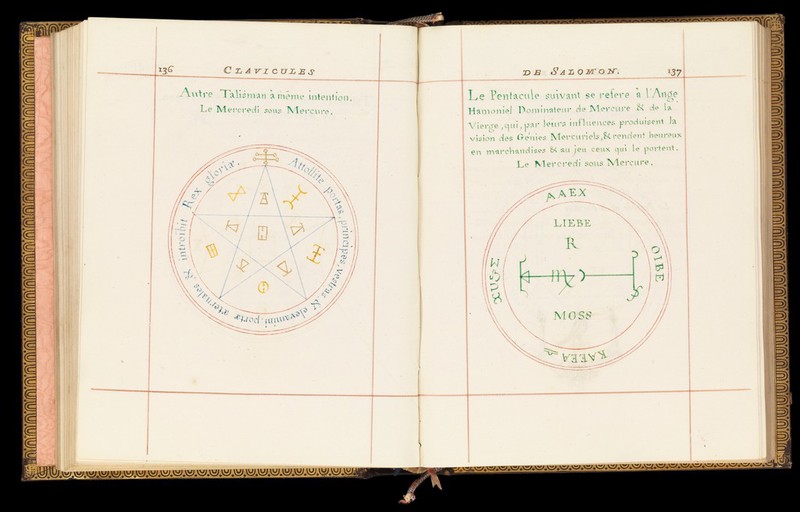 136
CLAVICULES
Autre Talisman à même intention.
Le Mercredi sous Mercure.
Attollite portas, principes, vestras & elevamini, portæ æternales & introibit Rex gloriæ.
DE SALOMON.
137
Le Pentacule suivant se refere à l'Ange
Hamoniel Dominateur de Mercure & de la
Vierge, qui, par leurs influences produisent la
vision des Génies Mercuriels, & rendent heureux
en marchandises & au jeu ceux qui le portent.
Le Mercredi sous Mercure.
AAEX
LIEBE
R
OIBE
MOSS